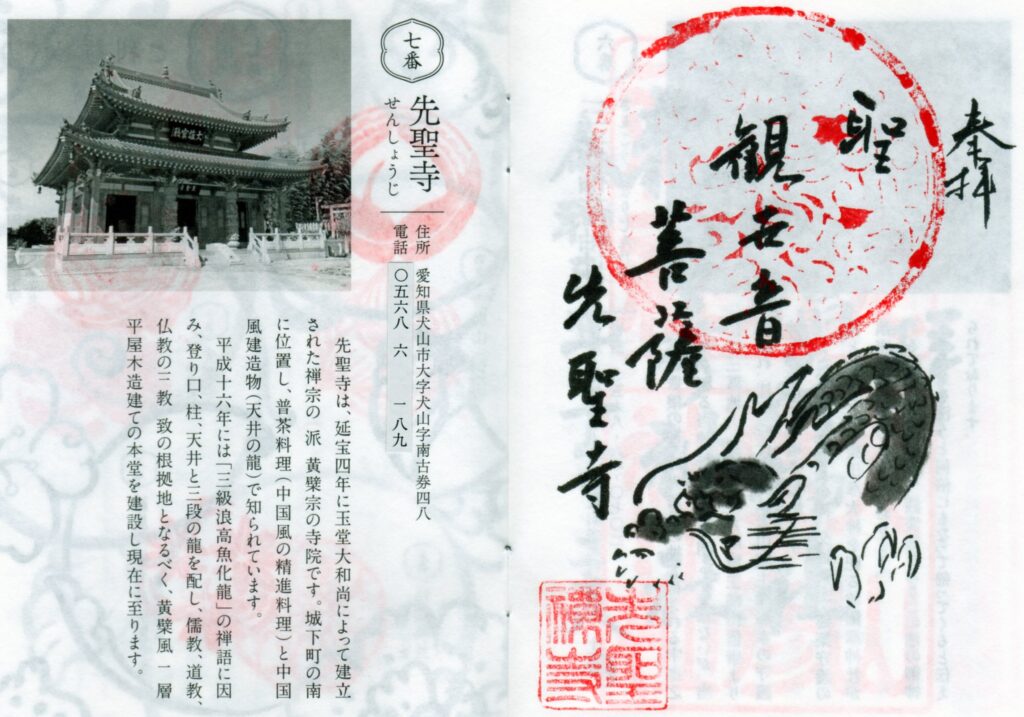 奉拝
聖
観世音
菩薩
先聖寺
先聖禅寺
七番
先聖寺
せんしょうじ
住所 愛知県犬山市大字犬山字南古券四八
電話 〇五六八 六 一八九
先聖寺は、延宝四年に玉堂大和尚によって建立
された禅宗の 派 黄檗宗の寺院です。城下町の南
に位置し、普茶料理(中国風の精進料理)と中国
風建造物(天井の龍)で知られています。
平成十六年には「三級浪高魚化龍」の禅語に因
み、登り口、柱、天井と三段の龍を配し、儒教、道教、
仏教の三教 致の根拠地となるべく、黄檗風一層
平屋木造建ての本堂を建設し現在に至ります。